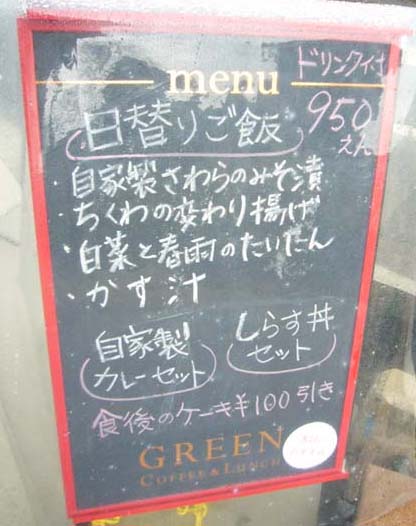 menu
ドリンク付
950
えん
日替りご飯
・自家製さわらのみそ漬
・ちくわの変わり揚げ
・白菜と春雨のたいたん
・かす汁
自家製
カレーセット
しらす丼
セット
食後のケーキ¥100引き
GREEN
COFFEE & LUNCH